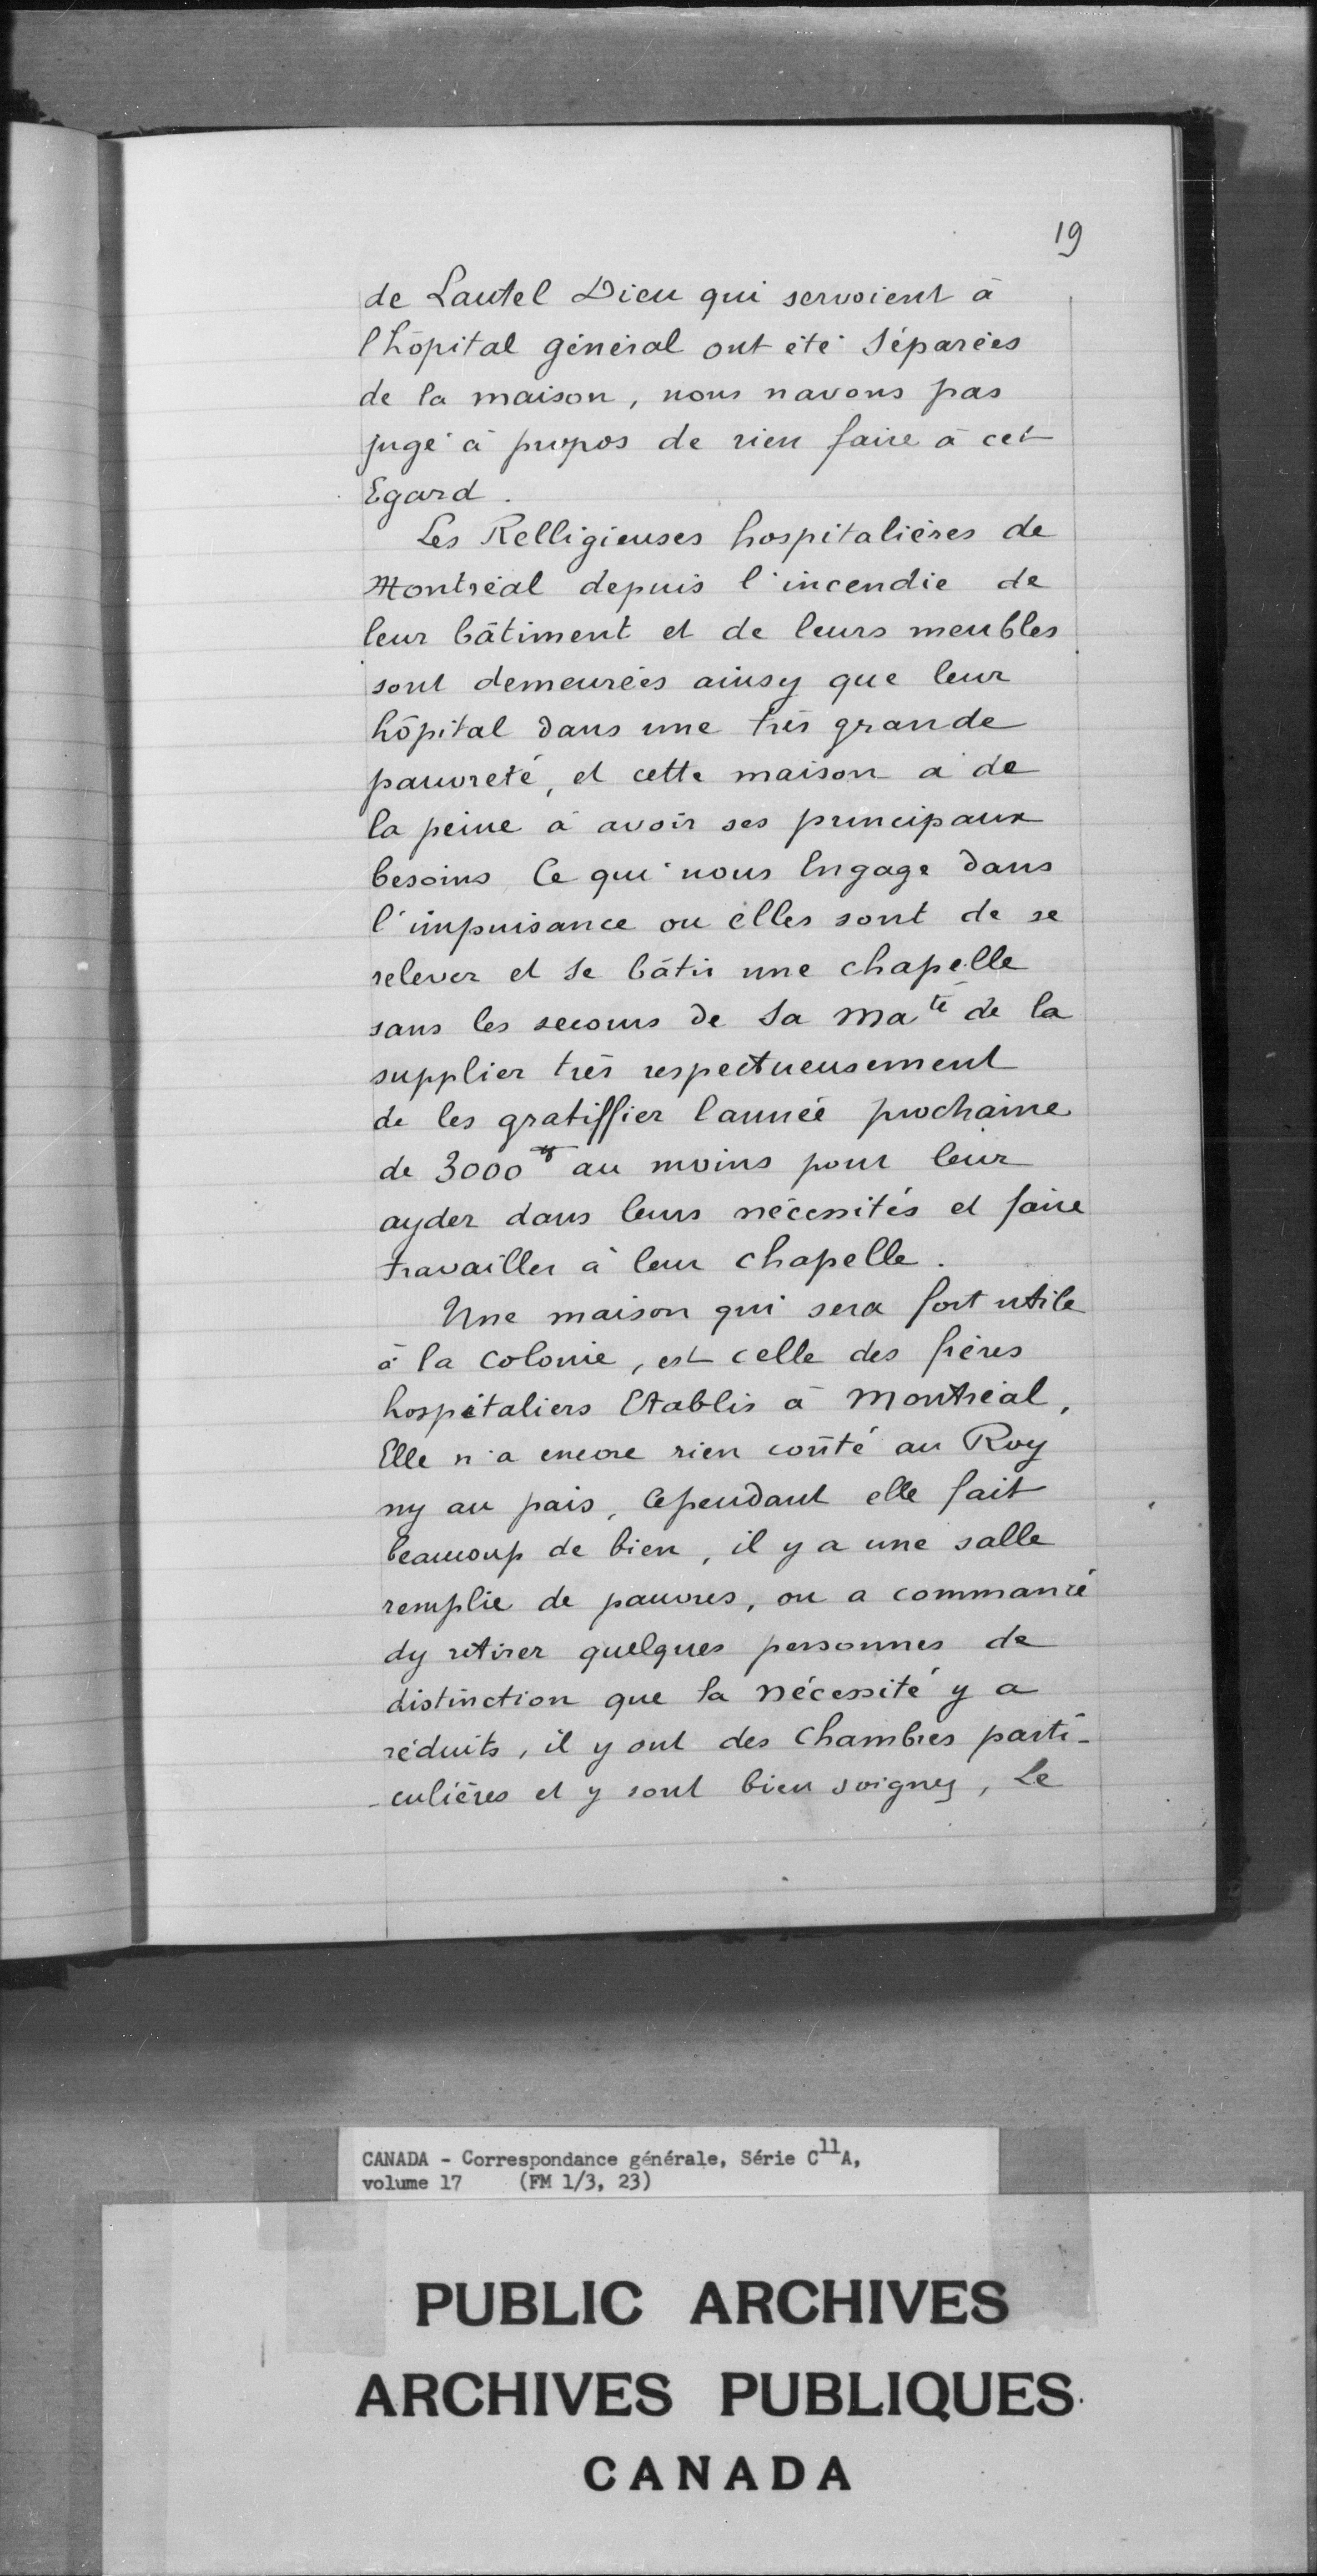 19
de Lautel Dieu qui servoient à
l'hôpital général ont été Séparées
de la maison, nous navons pas
jugé à propos de rien faire à cet
Egard.
Les Relligieuses hospitalières de
Montréal depuis l'incendie de
leur bâtiment et de leurs meubles
sont demeurées ainsy que leur
hôpital dans une très grande
pauvreté, et cette maison a de
la peine à avoir ses principaux
besoins Ce qui nous Engage dans
l'impuisance ou elles sont de se
relever et se bâtir une chapelle
sans les secours de Sa Maté de la
supplier très respectueusement
de les gratiffier lannée prochaine
de 3000 au moins pour leur
ayder dans leurs nécessités et faire
travailler à leur chapelle.
Une maison qui sera fort utile
à la Colonie, est celle des frères
hospitaliers Etablis à Montréal,
Elle n'a encore rien coûté au Roy
ny au pais, Cependant elle fait
beaucoup de bien, il y a une salle
remplie de pauvres, on a commancé
dy retirer quelques personnes de
distinction que la Nécessité y a
réduits, il y ont des Chambres parti-
-culières et y sont bien soignez, Le
CANADA - Correspondance générale, Série C11A,
volume 17 (FM 1/3, 23)
PUBLIC ARCHIVES
ARCHIVES PUBLIQUES
CANADA